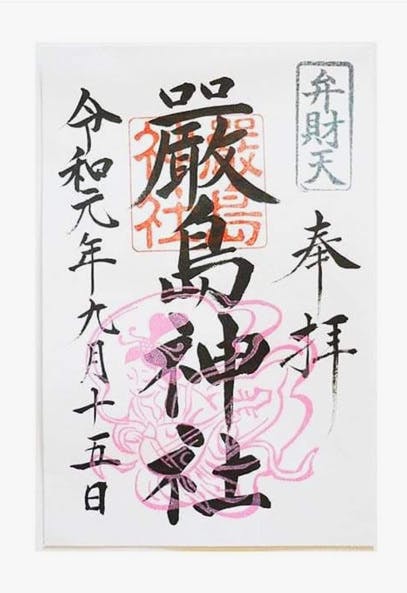 弁財天
奉拝
嚴島神社
嚴島神社
令和元年九月十五日